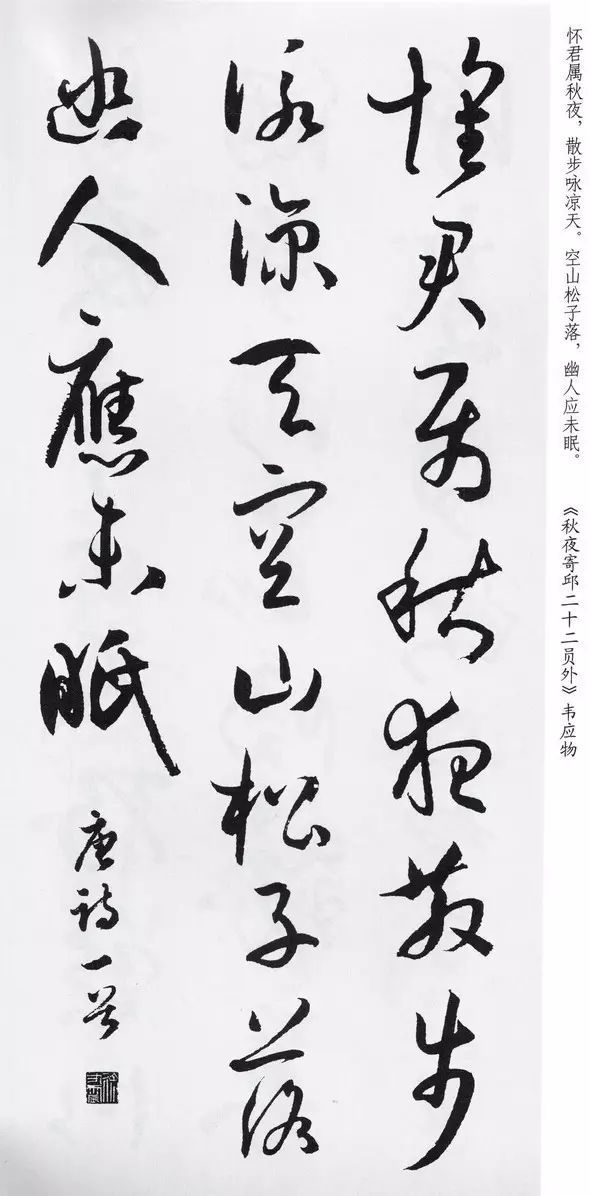 怀君属秋夜，散步咏凉天。空山松子落，幽人应未眠。
《秋夜寄邱二十二员外》韦应物
懷君属秋夜散步
咏涼天空山松子落
幽人應未眠
唐詩一首